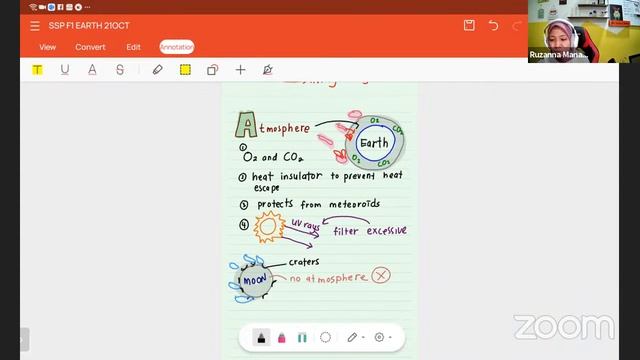 SSP F1 EARTH 21OCT
View Convert Edit Annotation
Ruzanna Mana...
Atmosphere
① O₂ and CO₂
O₂ CO₂
Earth
O₂ CO₂
② heat insulator to prevent heat
escape
③ protects from meteoroids
④ UV rays
filter excessive
craters
MOON
no atmosphere
zoom